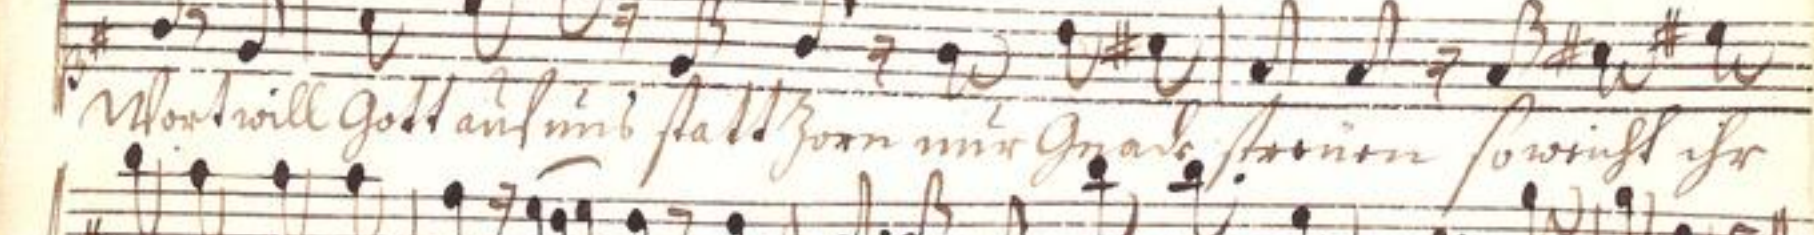 Wort will Gott auf uns statt Zorn nur Gnade streuen so weicht ihr